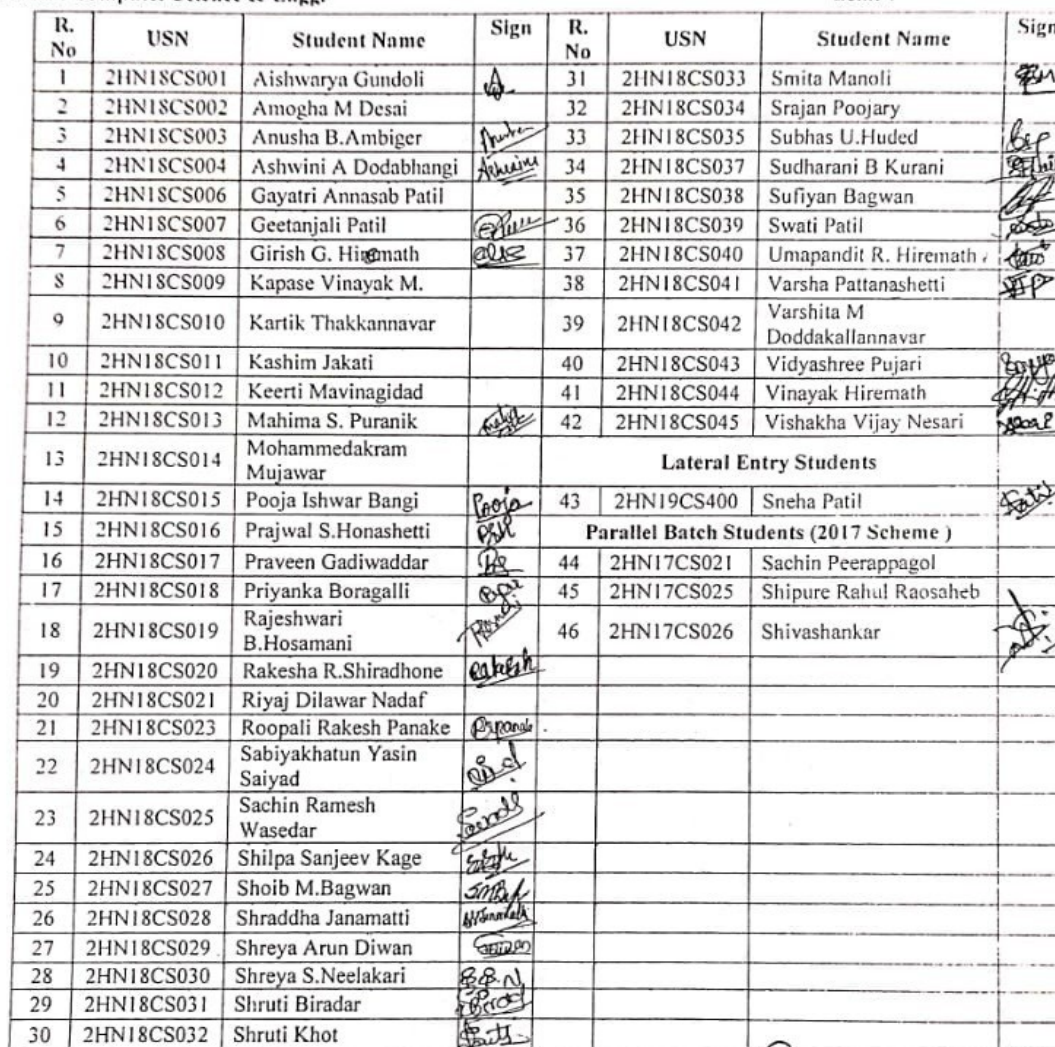 R. No USN Student Name Sign R. No USN Student Name Sign
1 2HN18CS001 Aishwarya Gundoli 31 2HN18CS033 Smita Manoli
2 2HN18CS002 Amogha M Desai 32 2HN18CS034 Srajan Poojary
3 2HN18CS003 Anusha B.Ambiger 33 2HN18CS035 Subhas U.Huded
4 2HN18CS004 Ashwini A Dodabhangi Ashwini 34 2HN18CS037 Sudharani B Kurani
5 2HN18CS006 Gayatri Annasab Patil 35 2HN18CS038 Sufiyan Bagwan
6 2HN18CS007 Geetanjali Patil 36 2HN18CS039 Swati Patil
7 2HN18CS008 Girish G. Hiremath 37 2HN18CS040 Umapandit R. Hiremath
8 2HN18CS009 Kapase Vinayak M. 38 2HN18CS041 Varsha Pattanashetti
9 2HN18CS010 Kartik Thakkannavar 39 2HN18CS042 Varshita M Doddakallannavar
10 2HN18CS011 Kashim Jakati 40 2HN18CS043 Vidyashree Pujari
11 2HN18CS012 Keerti Mavinagidad 41 2HN18CS044 Vinayak Hiremath
12 2HN18CS013 Mahima S. Puranik 42 2HN18CS045 Vishakha Vijay Nesari
13 2HN18CS014 Mohammedakram Mujawar Lateral Entry Students
14 2HN18CS015 Pooja Ishwar Bangi Pooja 43 2HN19CS400 Sneha Patil
15 2HN18CS016 Prajwal S.Honashetti PSH Parallel Batch Students (2017 Scheme )
16 2HN18CS017 Praveen Gadiwaddar 44 2HN17CS021 Sachin Peerappagol
17 2HN18CS018 Priyanka Boragalli 45 2HN17CS025 Shipure Rahul Raosaheb
18 2HN18CS019 Rajeshwari B.Hosamani 46 2HN17CS026 Shivashankar
19 2HN18CS020 Rakesha R.Shiradhone Rakesh
20 2HN18CS021 Riyaj Dilawar Nadaf
21 2HN18CS023 Roopali Rakesh Panake
22 2HN18CS024 Sabiyakhatun Yasin Saiyad
23 2HN18CS025 Sachin Ramesh Wasedar
24 2HN18CS026 Shilpa Sanjeev Kage
25 2HN18CS027 Shoib M.Bagwan
26 2HN18CS028 Shraddha Janamatti
27 2HN18CS029 Shreya Arun Diwan
28 2HN18CS030 Shreya S.Neelakari S.S.N
29 2HN18CS031 Shruti Biradar
30 2HN18CS032 Shruti Khot